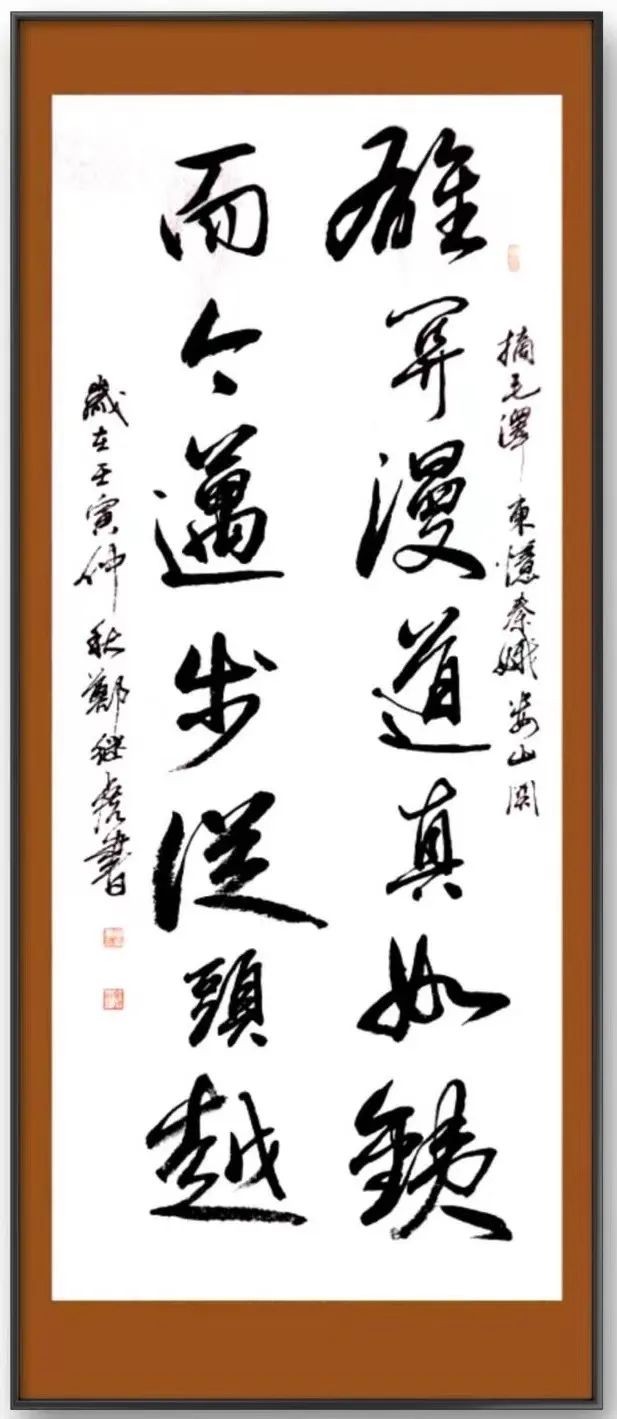 摘毛澤東憶秦娥娄山関
雄関漫道真如鉄
而今邁步從頭越
歲在壬寅仲秋鄭繼
書